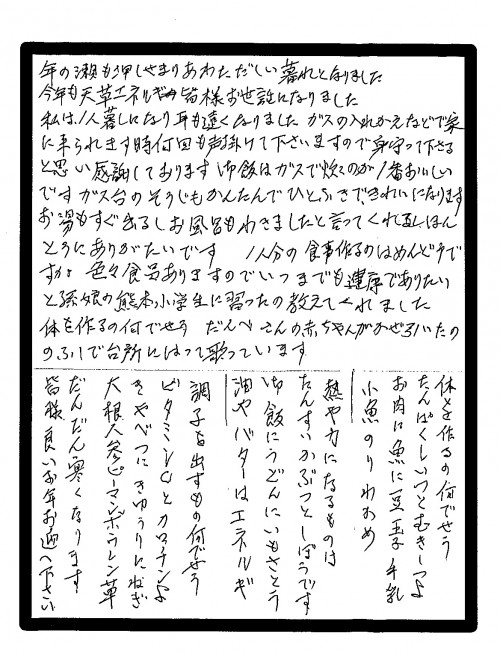 年の瀬も押しせまりあわただしい暮れとなりました
今年も天草エネルギー皆様お世話になりました
私は1人暮しになり耳も遠くなりました ガスの入れかえなどで家
に来られます時何回も声掛けて下さいますので身守って下さる
と思い感謝しております 御飯はガスで炊くのが1番おいしい
です ガス台のそうじもかんたんでひとふきできれいになります
お湯もすぐ出るしお風呂もわきましたと言ってくれましほん
とうにありがたいです 1人分の食事作るのはめんどうで
すが 色々食品ありますのでいつまでも健康でありたい
と孫娘の熊本小学生に習ったの教えてくれました
体を作るの何でせう だんべさんの赤ちゃんがかぜひいたの
のふしで台所にはって歌っています
体を作るの何でせう
たんぱくしいつとむきしつよ
お肉に魚に豆玉子牛乳
小魚のりわかめ
熱や力になるものは
たんすいかぶつとしぼうです
御飯にうどんにいもさとう
油やバターはエネルギ
調子を出すもの何でせう
ビタミンCとカロチンよ
きゃべつにきゆうりにねぎ
大根人参ピーマンボウレン草
だんだん寒くなります
皆様良いお年お過へ下さい